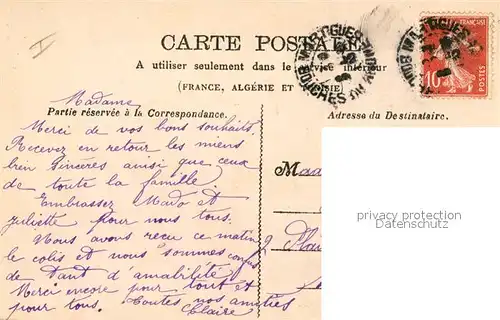 CARTE POSTALE
A utiliser seulement dans le service intérieur
(FRANCE, ALGÉRIE ET
Partie réservée à la Correspondance.
Adresse du Destinataire.
MARTIGUES
BOUCHES DU RHONE
10
POSTES
Madame
Merci de vos bons souhaits.
Recevez en retour les miens
bien sincères ainsi que ceux
de toute la famille.
Embrassez Mado et
Juliette pour nous tous.
Nous avons reçu ce matin
le colis et nous sommes confus
de tant d'amabilité
Merci encore pour tout et
pour tous. Toutes nos amitiés
Claire
privacy protection
Datenschutz